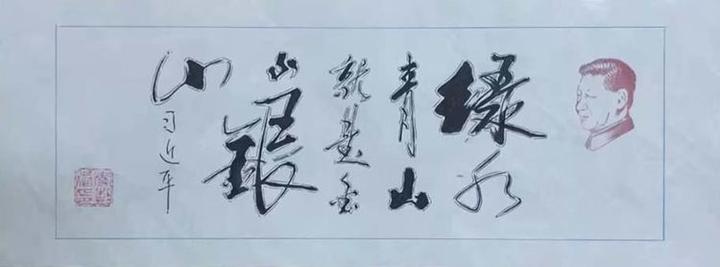 绿水
青山
就是金
山银
山
习近平